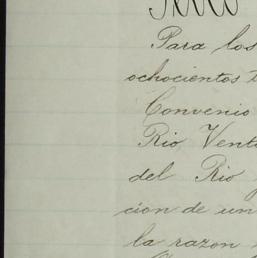 Para los
ochocientos
Convenio
Rio Vent
del Rio
cion de un
la razon